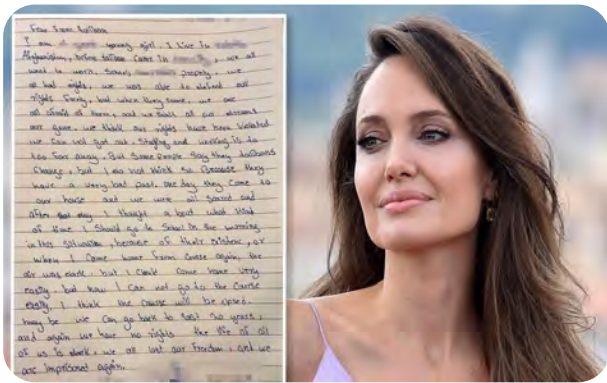 Fear From Taliban
I am a young girl. I live in
Afghanistan, before taliban came in, we all
went to work, school, properly, we
all had rights, we was able to defend our
rights freely, but when they came, we are
all afraid of them, and we think all our dreams
are gone. we think our rights have been violated
we can not get out, studying and working is to
too far away. But some people say they talibans
change, but I do not think so because they
have a very bad past. one day they come to
our house and we were all scared and
after that day I thought a bout what kind
of time I should go to school in the morning
in this satuation, because of their existence, or
when I come home from course again, the
air was dark. but I could come home very
easily, but now I can not go to the course
easily, I think the course will be closed.
may be we can go back to last 20 years,
and again we have no rights the life of all
of us is dark, we all lost our freedom, and we
are imprisoned again.